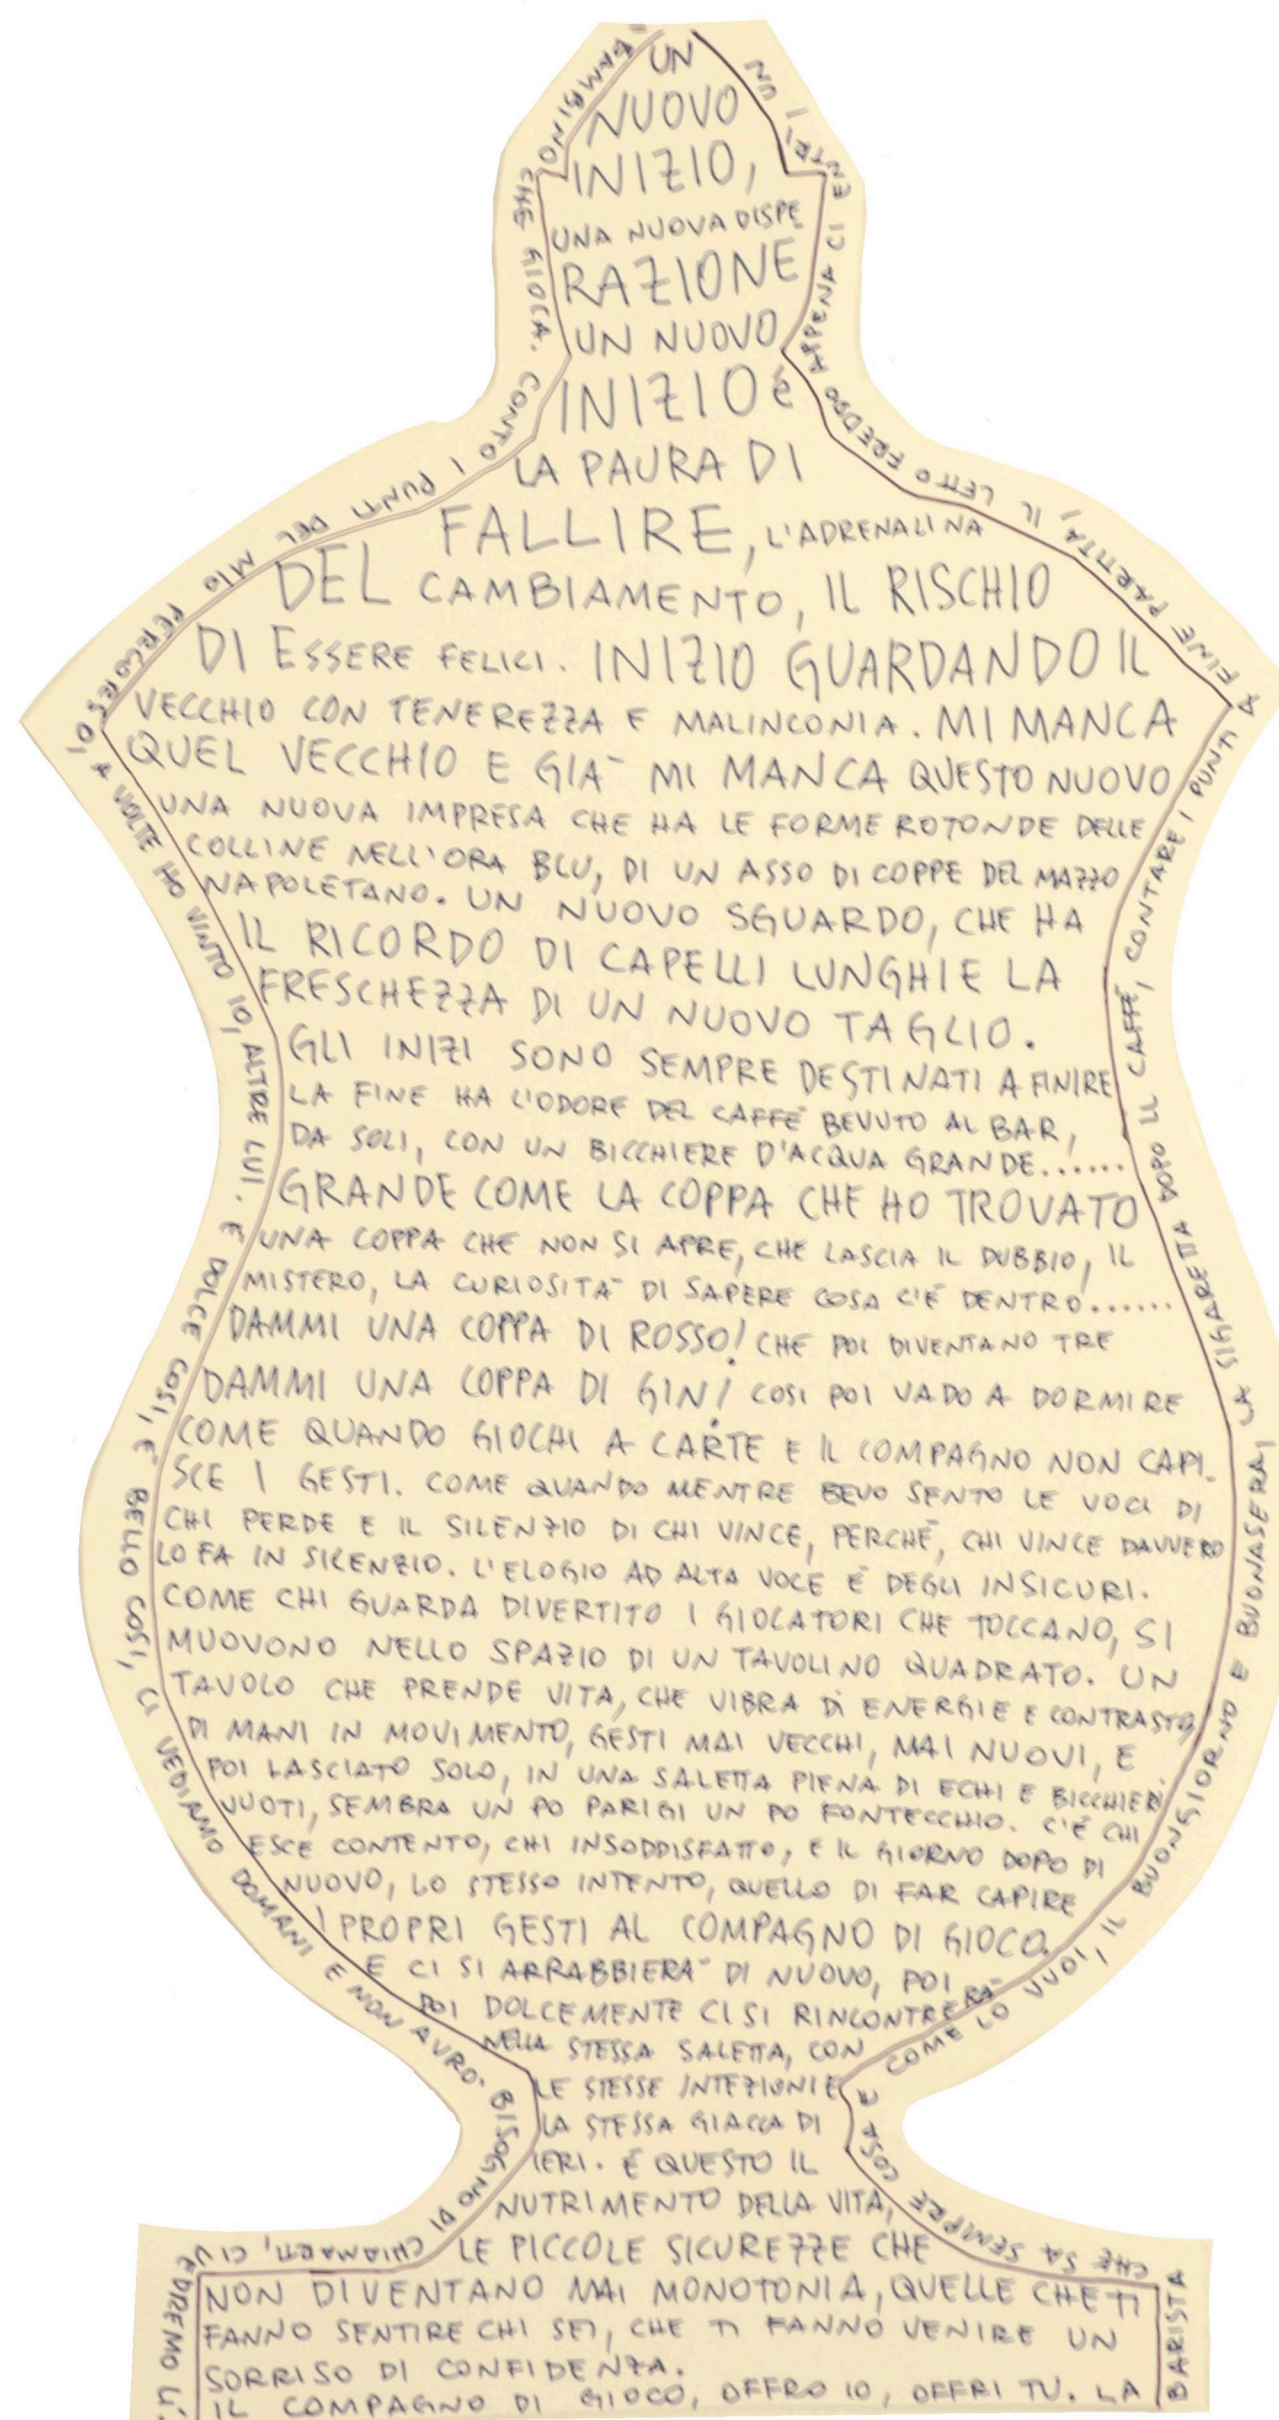 UN
NUOVO
INIZIO,
UNA NUOVA DISPE
RAZIONE
UN NUOVO
INIZIO È
LA PAURA DI
FALLIRE, L'ADRENALINA
DEL CAMBIAMENTO, IL RISCHIO
DI ESSERE FELICI. INIZIO GUARDANDO IL
VECCHIO CON TENEREZZA E MALINCONIA. MI MANCA
QUEL VECCHIO E GIA' MI MANCA QUESTO NUOVO
UNA NUOVA IMPRESA CHE HA LE FORME ROTONDE DELLE
COLLINE NELL'ORA BLU, DI UN ASSO DI COPPE DEL MAZZO
NAPOLETANO. UN NUOVO SGUARDO, CHE HA
IL RICORDO DI CAPELLI LUNGHI E LA
FRESCHEZZA DI UN NUOVO TAGLIO.
GLI INIZI SONO SEMPRE DESTINATI A FINIRE
LA FINE HA L'ODORE DEL CAFFÈ BEVUTO AL BAR,
DA SOLI, CON UN BICCHIERE D'ACQUA GRANDE......
GRANDE COME LA COPPA CHE HO TROVATO
UNA COPPA CHE NON SI APRE, CHE LASCIA IL DUBBIO, IL
MISTERO, LA CURIOSITA' DI SAPERE COSA C'È DENTRO......
DAMMI UNA COPPA DI ROSSO! CHE POI DIVENTANO TRE
DAMMI UNA COPPA DI GIN! COSI POI VADO A DORMIRE
COME QUANDO GIOCHI A CARTE E IL COMPAGNO NON CAPI-
SCE I GESTI. COME QUANDO MENTRE BEVO SENTO LE VOCI DI
CHI PERDE E IL SILENZIO DI CHI VINCE, PERCHÉ, CHI VINCE DAVVERO
LO FA IN SILENZIO. L'ELOGIO AD ALTA VOCE È DEGLI INSICURI.
COME CHI GUARDA DIVERTITO I GIOCATORI CHE TOCCANO, SI
MUOVONO NELLO SPAZIO DI UN TAVOLINO QUADRATO. UN
TAVOLO CHE PRENDE VITA, CHE VIBRA DI ENERGIE E CONTRASTO,
DI MANI IN MOVIMENTO, GESTI MAI VECCHI, MAI NUOVI, E
POI LASCIATO SOLO, IN UNA SALETTA PIENA DI ECHI E BICCHIERI
VUOTI, SEMBRA UN PO PARIGI UN PO FONTECCHIO. C'È CHI
ESCE CONTENTO, CHI INSODDISFATTO, E IL GIORNO DOPO DI
NUOVO, LO STESSO INTENTO, QUELLO DI FAR CAPIRE
I PROPRI GESTI AL COMPAGNO DI GIOCO.
E CI SI ARRABBIERA' DI NUOVO, POI
POI DOLCEMENTE CI SI RINCONTRERA'
NELLA STESSA SALETTA, CON
LE STESSE INTEZIONI E
LA STESSA GIACCA DI
IERI. È QUESTO IL
NUTRIMENTO DELLA VITA,
LE PICCOLE SICUREZZE CHE
NON DIVENTANO MAI MONOTONIA, QUELLE CHE TI
FANNO SENTIRE CHI SEI, CHE TI FANNO VENIRE UN
SORRISO DI CONFIDENZA.
IL COMPAGNO DI GIOCO, OFFRO IO, OFFRI TU. LA
BARISTA
CHE SA SEMPRE COSA E COME LO VUOI, IL BUONGIORNO E BUONASERA, LA SIGARETTA DOPO IL CAFFÈ, CONTARE I PUNTI
A FINE PARTITA, IL LETTO FREDDO APPENA CI ENTRI, UN
BAMBINO CHE GIOCA. CONTO I PUNTI DEL MIO PERCORSO,
A VOLTE HO VINTO IO, ALTRE LUI. E DOLCE COSI, E' BELLO COSI, CI VEDIAMO DOMANI E NON AVRO' BISOGNO DI CHIAMARTI, CI
VEDREMO LI'.